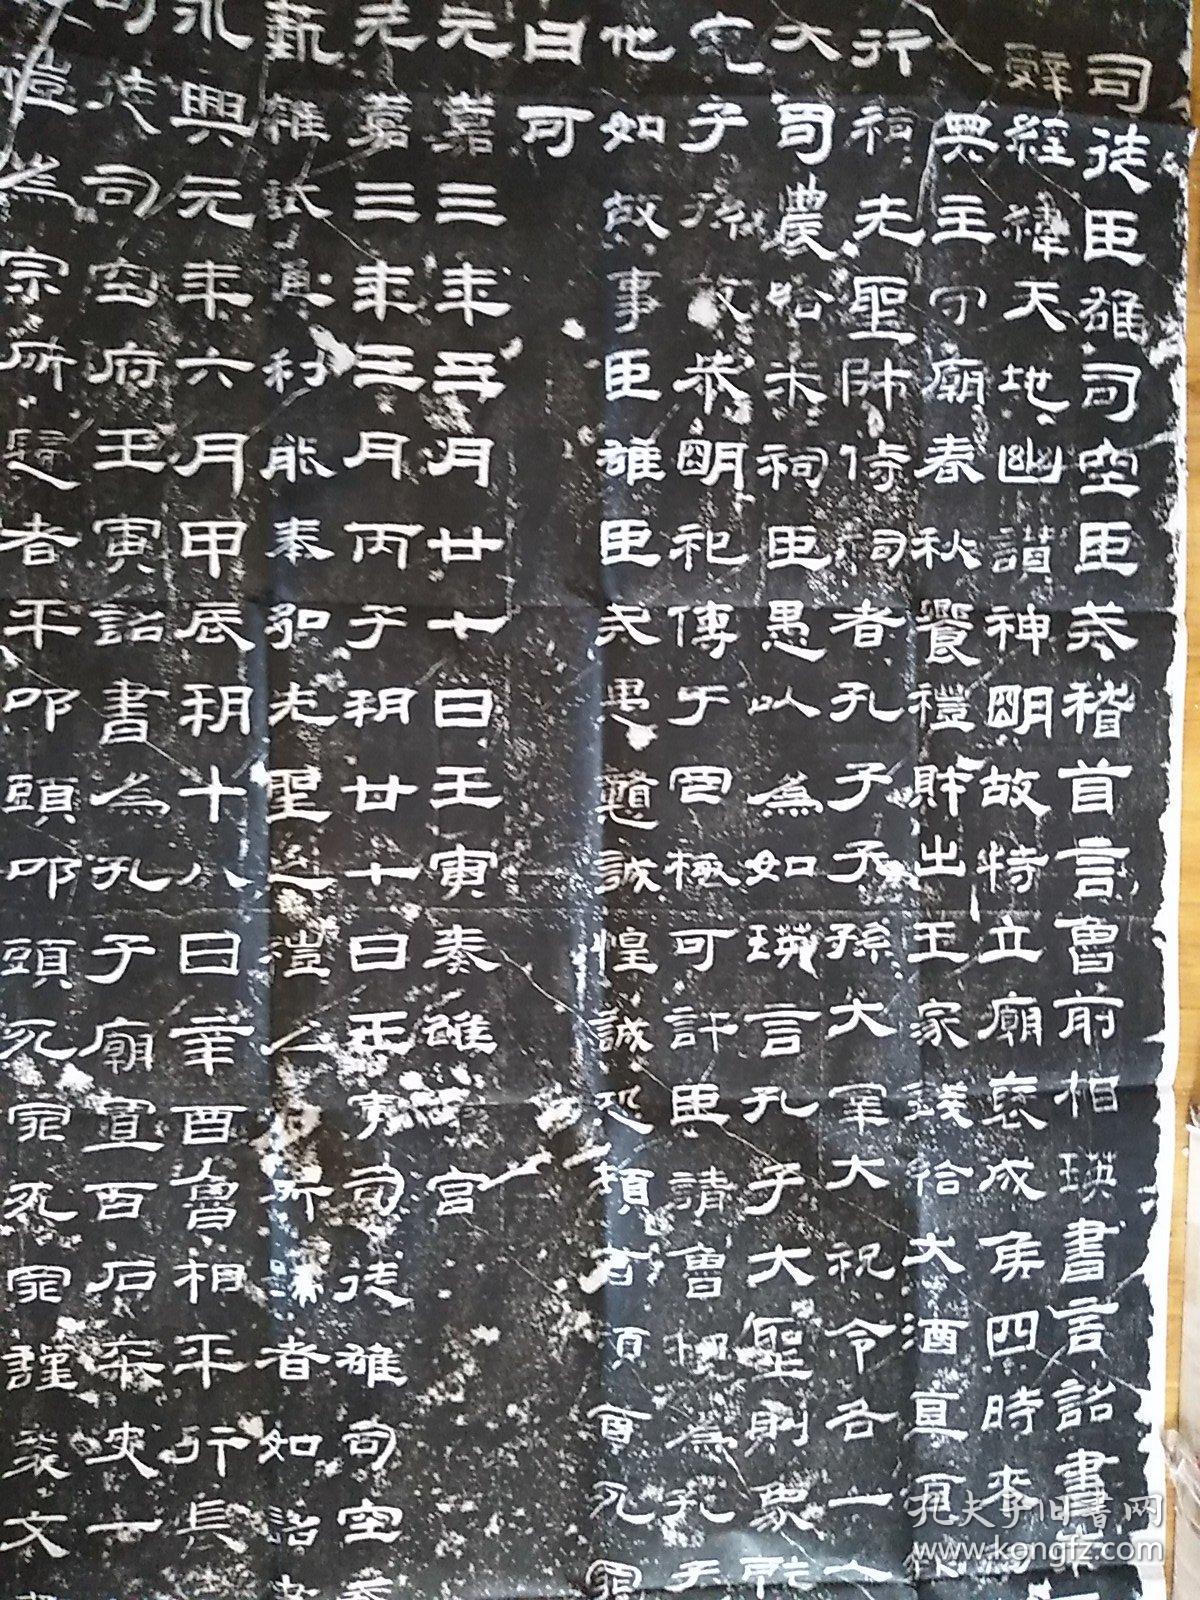 司徒臣雄司空臣戒稽首言魯前相瑛書言詔書
辭經緯天地幽讚神明故特立廟褒成侯四時來
典主守廟春秋饗禮財出王家錢給犬酒直
行祠先聖師侍祠者孔子子孫大宰大祝令各一人
大司農給米祠臣愚以為如瑛言孔子大聖則象乾
子孫故恭明祀傳于罔極可許臣請魯相為孔子
他如故事臣雄臣戒愚戇誠惶誠恐頓首頓首死罪
曰可
元嘉三年三月廿七日壬寅奏雒陽宮
元嘉三年三月丙子朔廿七日壬寅司徒雄司空
藝雜試通利能奉弘先聖之禮為宗所歸者如詔
永興元年六月甲辰朔十八日辛酉魯相平行長
司徒司空府壬寅詔書為孔子廟置百石卒史一
禮為宗所歸者平叩頭叩頭死罪死罪謹案文
孔夫子旧書网
www.kongfz.com